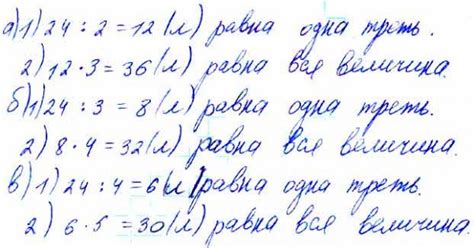 а) 1) 24 : 2 = 12 (л) равна одна треть.
2) 12 · 3 = 36 (л) равна вся величина.
б) 1) 24 : 3 = 8 (л) равна одна треть.
2) 8 · 4 = 32 (л) равна вся величина.
в) 1) 24 : 4 = 6 (л) равна одна треть.
2) 6 · 5 = 30 (л) равна вся величина.